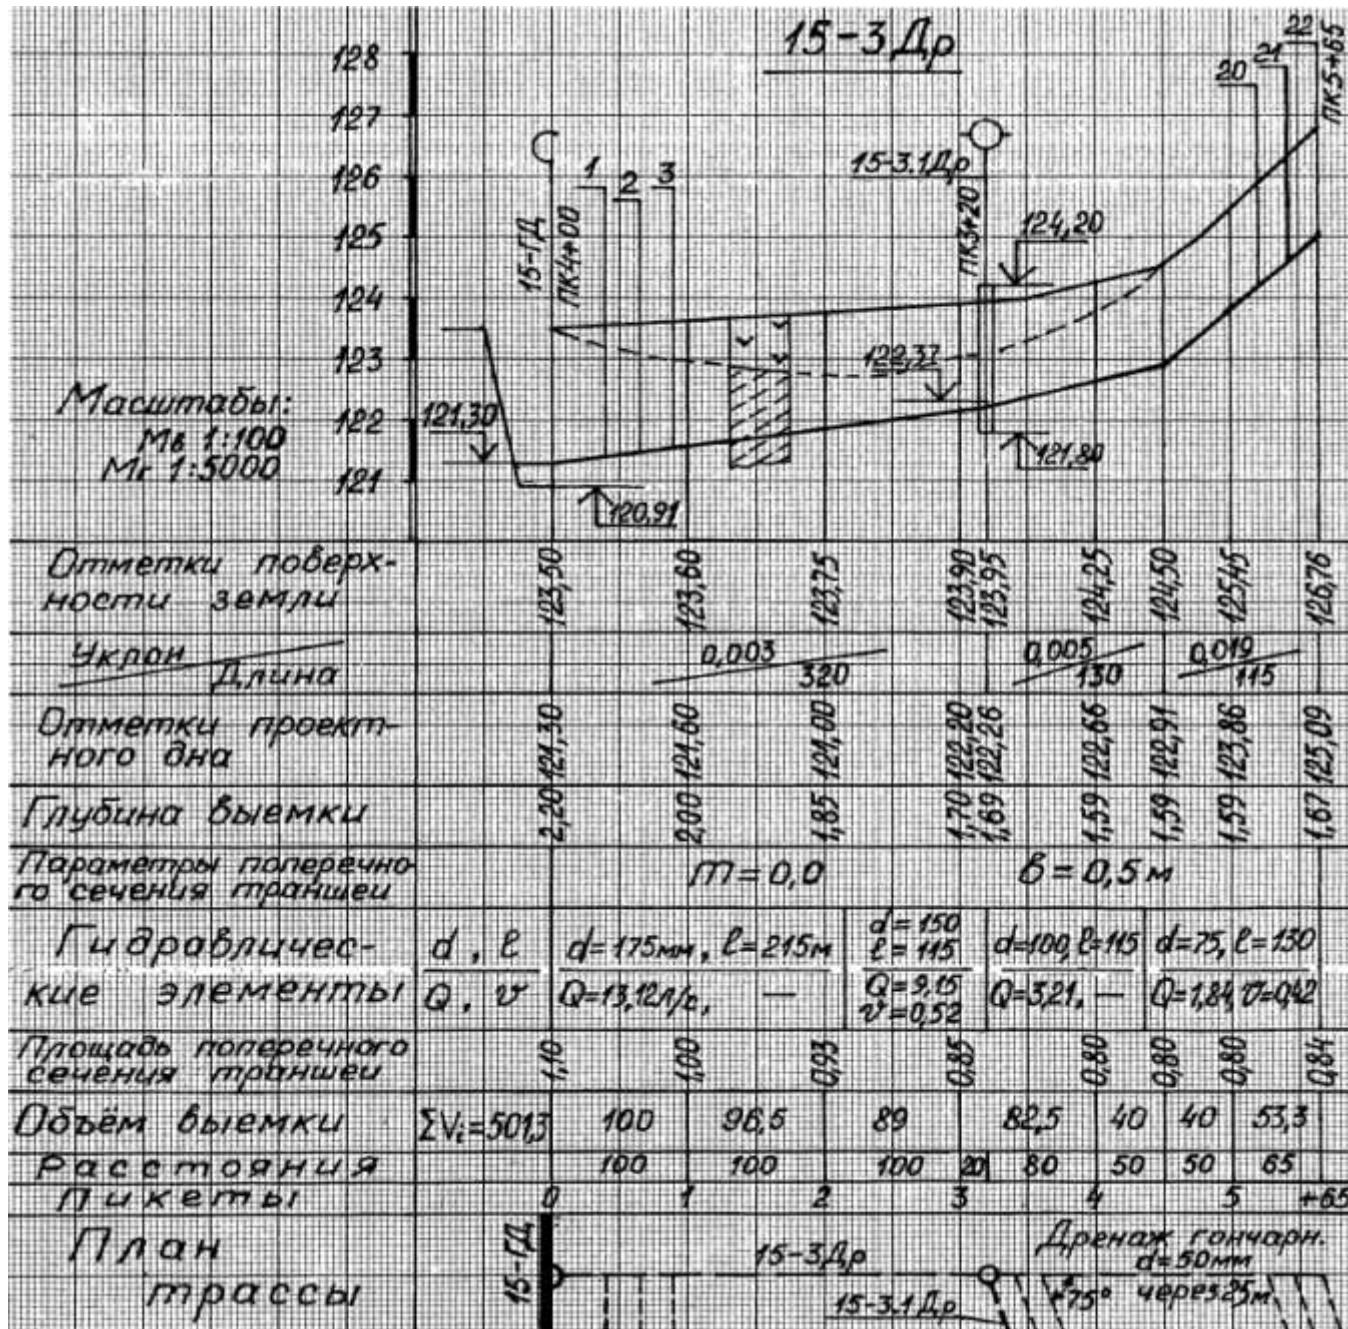 15-3 Др
128
127
126
125
124
123
122
121
1
2
3
20
21
22
ПК5+65
15-ГД
ПК4+00
15-3.1Др
ПК3+20
124,20
122,37
121,30
121,80
120,91
Масштабы:
Мв 1:100
Мг 1:5000
Отметки поверх-
ности земли
123,50 123,60 123,75 123,90 123,95 124,25 124,50 125,45 126,76
Уклон
Длина
0,003 320 0,005 130 0,019 115
Отметки проект-
ного дна
121,30 121,60 121,00 122,20 122,26 122,66 122,91 123,86 125,09
Глубина выемки
2,20 2,00 1,85 1,70 1,69 1,59 1,59 1,59 1,67
Параметры поперечно-
го сечения траншеи
m=0,0 в=0,5м
Гидравличес-
кие элементы
d, ℓ
Q, v
d=175мм, ℓ=215м
Q=13,12л/с, —
d=150
ℓ=115
Q=9,15
v=0,52
d=100, ℓ=115
Q=3,21, —
d=75, ℓ=130
Q=1,84, v=0,42
Площадь поперечного
сечения траншеи
1,10 1,00 0,93 0,85 0,80 0,80 0,80 0,84
Объём выемки
ΣVi=501,3 100 96,5 89 82,5 40 40 53,3
Расстояния
100 100 100 20 80 50 50 65
Пикеты
0 1 2 3 4 5 +65
План
трассы
15-ГД
15-3Др
15-3.1Др
Дренаж гончарн.
d=50мм
75° через 25м